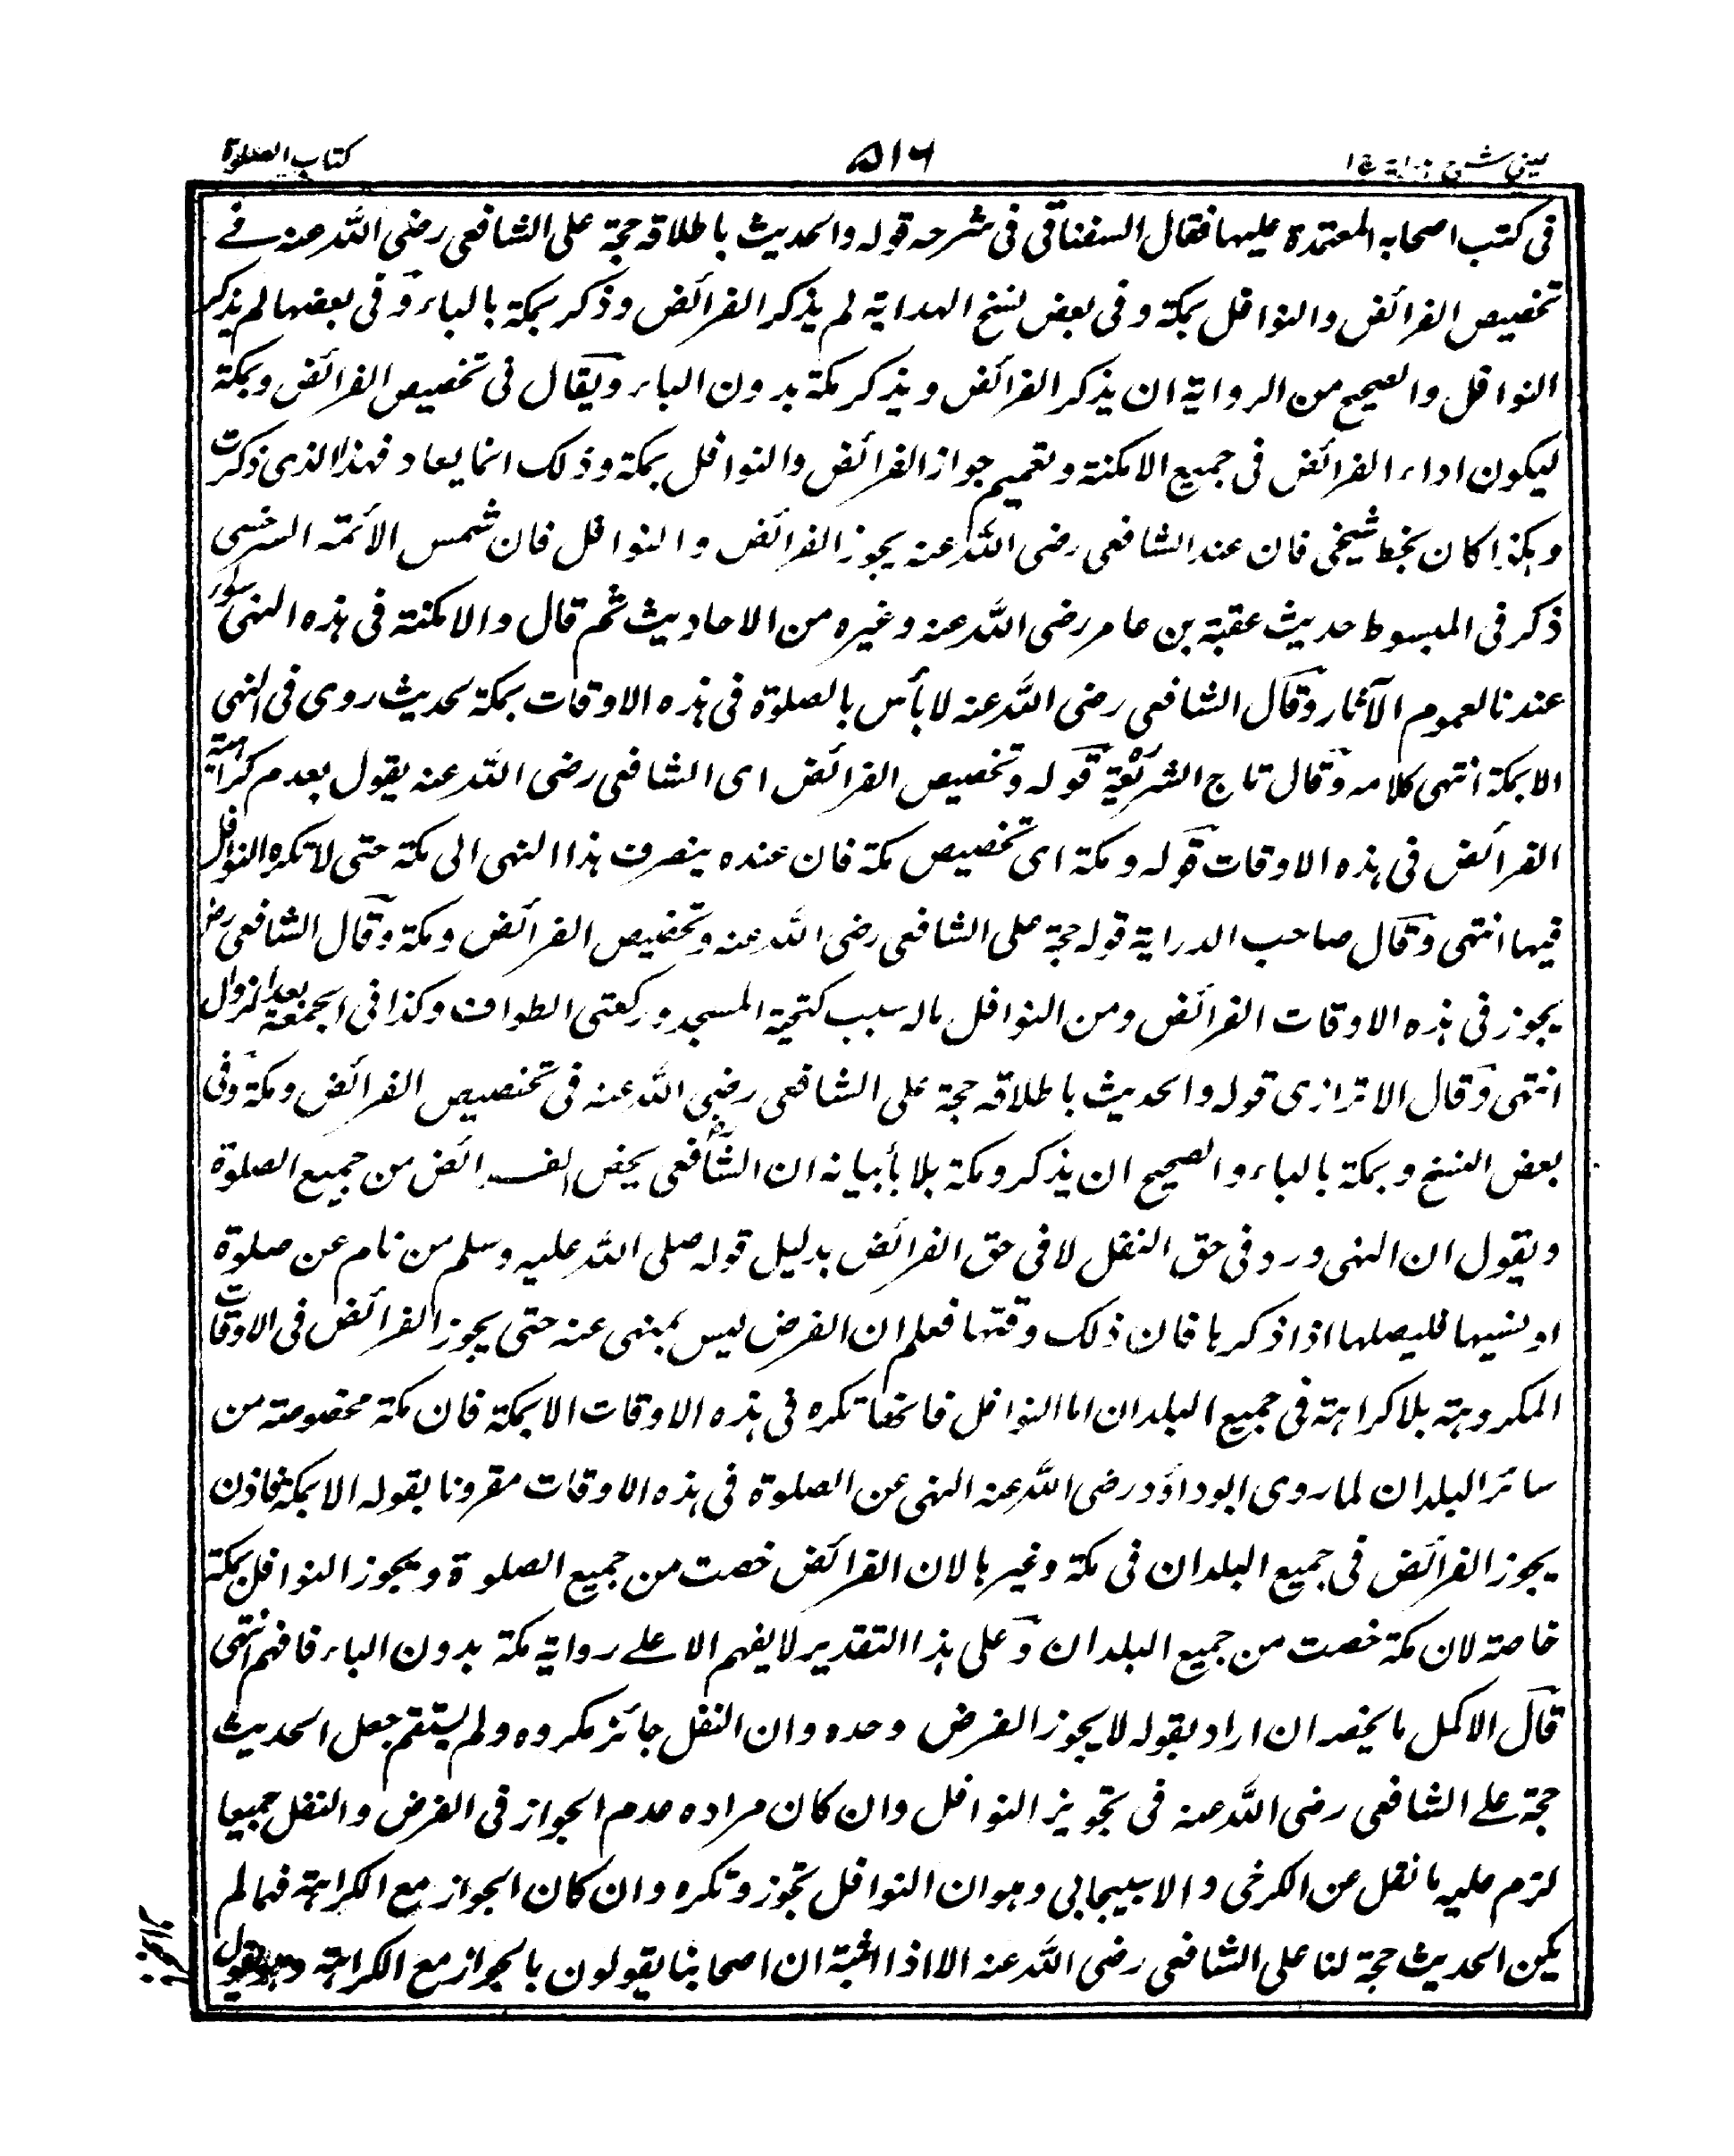 عینی شرح ہدایہ ج ۱
۵۱۶
کتاب الصلوة
فی کتب اصحابہ المعتمدة علیہا فقال السغناقی فی شرحہ قولہ والحدیث باطلاقہ حجة علی الشافعی رضی اللہ عنہ فے
تخصیص الفرائض والنوافل بمکة وفی بعض نسخ الہدایة لم یذکر الفرائض وذکر بمکة بالباء وفی بعضہا لم یذکر
النوافل والصحیح من الروایة ان یذکر الفرائض ویذکر مکة بدون الباء ویقال فی تخصیص الفرائض وبمکة
لیکون اداء الفرائض فی جمیع الامکنة وتعمیم جواز الفرائض والنوافل بمکة وذلک انما یعاد فہذا الذی ذکرت
وہکذا کان بخط شیخی فان عند الشافعی رضی اللہ عنہ یجوز الفرائض والنوافل فان شمس الائمة السرخسی
ذکر فی المبسوط حدیث عقبة بن عامر رضی اللہ عنہ وغیرہ من الاحادیث ثم قال والامکنة فی ہذہ النہی سواء
عندنا لعموم الآثار وقال الشافعی رضی اللہ عنہ لا بأس بالصلوة فی ہذہ الاوقات بمکة لحدیث روی فی النہی
الا بمکة انتہی کلامہ وقال تاج الشریعة قولہ وتخصیص الفرائض ای الشافعی رضی اللہ عنہ یقول بعدم کراہتہ
الفرائض فی ہذہ الاوقات قولہ ومکة ای تخصیص مکة فان عندہ ینصرف ہذا النہی الی مکة حتی لا تکرہ النوافل
فیہا انتہی وقال صاحب الدرایة قولہ حجة علی الشافعی رضی اللہ عنہ وتخصیص الفرائض ومکة وقال الشافعی رض
یجوز فی ہذہ الاوقات الفرائض ومن النوافل مالہ سبب کتحیة المسجد ورکعتی الطواف وکذا فی الجمعة بعد الزوال
انتہی وقال الاترازی قولہ والحدیث باطلاقہ حجة علی الشافعی رضی اللہ عنہ فی تخصیص الفرائض ومکة وفی
بعض النسخ وبمکة بالباء والصحیح ان یذکر ومکة بلا بأبیانہ ان الشافعی یخص الفرائض من جمیع الصلوة
ویقول ان النہی ورد فی حق النفل لا فی حق الفرائض بدلیل قولہ صلی اللہ علیہ وسلم من نام عن صلوة
او نسیہا فلیصلہا اذا ذکرہا فان ذلک وقتہا فعلم ان الفرض لیس بمنہی عنہ حتی یجوز الفرائض فی الاوقات
المکروہتہ بلا کراہتہ فی جمیع البلدان اما النوافل فانھا تکرہ فی ہذہ الاوقات الا بمکة فان مکة مخصوصتہ من
سائر البلدان لما روی ابو داؤد رضی اللہ عنہ النہی عن الصلوة فی ہذہ الاوقات مقرونا بقولہ الا بمکة فاذن
یجوز الفرائض فی جمیع البلدان فی مکة وغیرہا لان الفرائض خصت من جمیع الصلوة ویجوز النوافل بمکة
خاصة لان مکة خصت من جمیع البلدان وعلی ہذا التقدیر لا یفہم الا علے روایة مکة بدون الباء فافہم انتہی
قال الاکمل ما یخصہ ان اراد بقولہ لا یجوز الفرض وحدہ وان النفل جائز مکروہ ولم یستقم جعل الحدیث
حجة علے الشافعی رضی اللہ عنہ فی تجویز النوافل وان کان مرادہ عدم الجواز فی الفرض والنفل جمیعا
لزم علیہ ما نقل عن الکرخی والاسبیجابی وہو ان النوافل تجوز وتکرہ وان کان الجواز مع الکراہتہ فہما لم
یکن الحدیث حجة لنا علی الشافعی رضی اللہ عنہ الا اذا اثبتہ ان اصحابنا یقولون بالجواز مع الکراہتہ وہو یقول